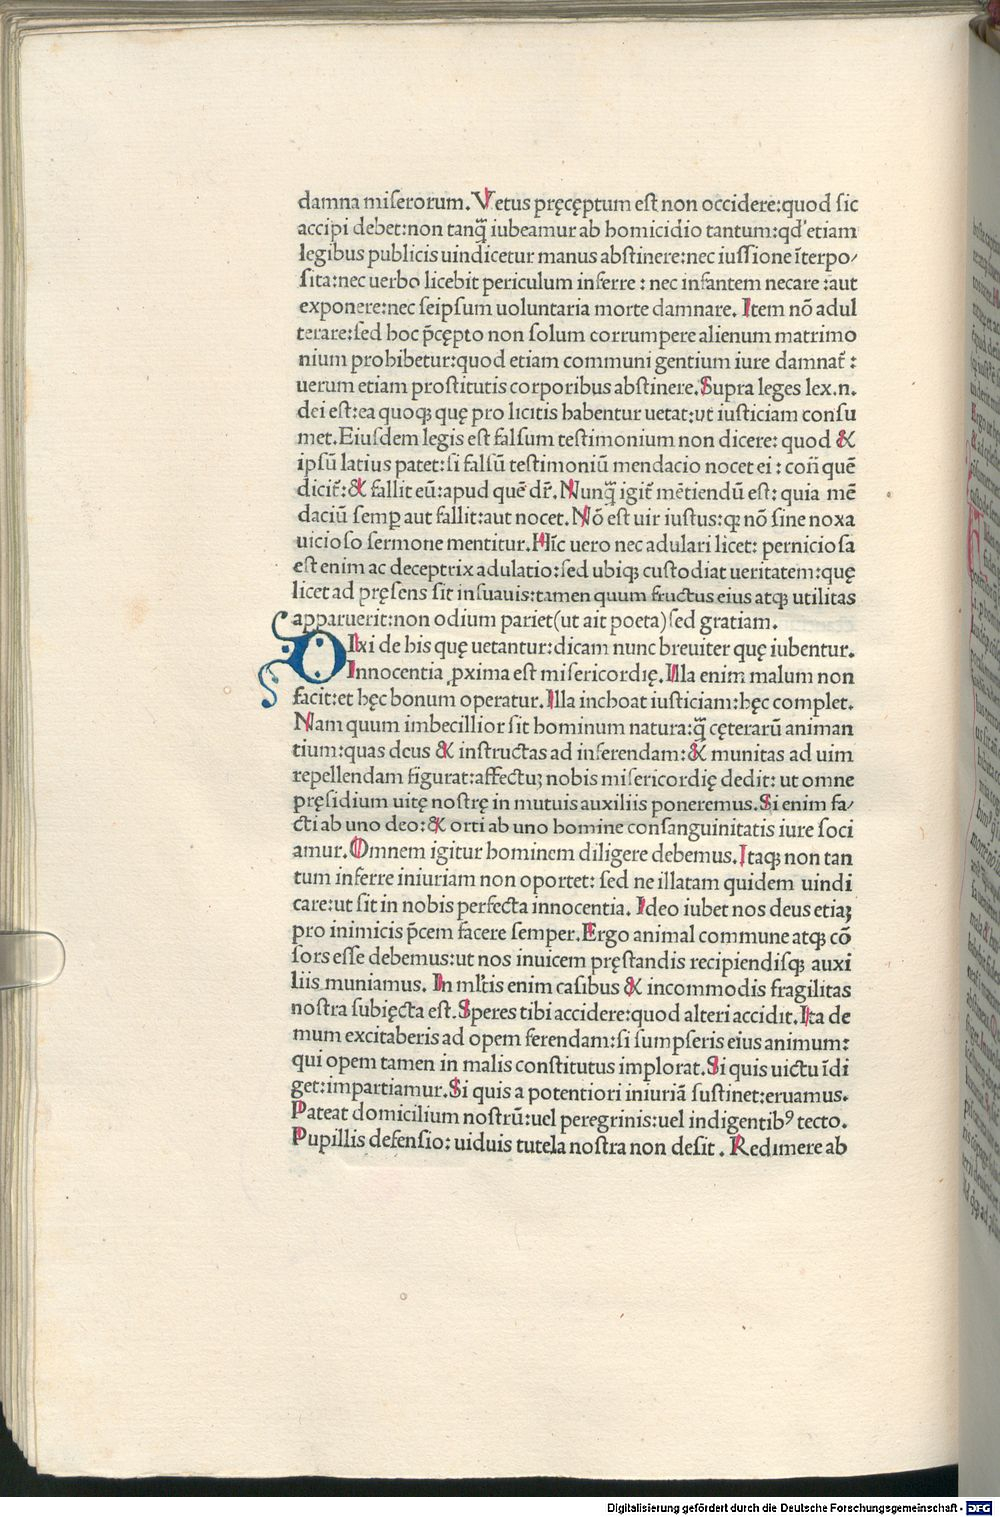 damna miſerorum. Vetus pręcęptum eſt non occidere: quod ſic
accipi debet: non tanq̃ iubeamur ab homicidio tantum: qd' etiam
legibus publicis uindicetur manus abſtinere: nec iuſſione īterpo/
ſita: nec uerbo licebit periculum inferre : nec infantem necare : aut
exponere: nec ſeipſum uoluntaria morte damnare. Item nō adul
terare: ſed hoc p̄cępto non ſolum corrumpere alienum matrimo
nium prohibetur: quod etiam communi gentium iure damnat̄ :
uerum etiam proſtitutis corporibus abſtinere. Supra leges lex .n.
dei eſt: ea quoqꝫ quę pro licitis habentur uetat: ut iuſticiam conſu
met. Eiuſdem legis eſt falſum teſtimonium non dicere: quod &
ipſū latius patet: ſi falſū teſtimoniū mendacio nocet ei : con̄ quē
dicit̄: & fallit eū: apud quē dr̄. Nunq̃ igit̄ mētiendū eſt: quia mē
daciū ſemꝑ aut fallit: aut nocet. Nō eſt uir iuſtus: qꝫ nō ſine noxa
uicioſo ſermone mentitur. Hīc uero nec adulari licet: pernicioſa
eſt enim ac deceptrix adulatio: ſed ubiqꝫ cuſtodiat ueritatem: quę
licet ad pręſens ſit inſuauis: tamen quum fructus eius atqꝫ utilitas
apparuerit: non odium pariet (ut ait poeta) ſed gratiam.
DIxi de his quę uetantur: dicam nunc breuiter quę iubentur.
Innocentia ꝓxima eſt miſericordię. Illa enim malum non
facit: et hęc bonum operatur. Illa inchoat iuſticiam: hęc complet.
Nam quum imbecillior ſit hominum natura: q̃ cęterarū animan
tium: quas deus & inſtructas ad inferendam: & munitas ad uim
repellendam figurat: affectuꝫ nobis miſericordię dedit: ut omne
pręſidium uitę noſtrę in mutuis auxiliis poneremus. Si enim fa/
cti ab uno deo: & orti ab uno homine conſanguinitatis iure ſoci
amur. Omnem igitur hominem diligere debemus. Itaqꝫ non tan
tum inferre iniuriam non oportet: ſed ne illatam quidem uindi
care: ut ſit in nobis perfecta innocentia. Ideo iubet nos deus etiaꝫ
pro inimicis p̄cem facere ſemper. Ergo animal commune atqꝫ cō
ſors eſſe debemus: ut nos inuicem pręſtandis recipiendiſqꝫ auxi
liis muniamus. In ml'tis enim caſibus & incommodis fragilitas
noſtra ſubięcta eſt. Speres tibi accidere: quod alteri accidit. Ita de
mum excitaberis ad opem ferendam: ſi ſumpſeris eius animum:
qui opem tamen in malis conſtitutus implorat. Si quis uictu īdi
get: impartiamur. Si quis a potentiori iniuriā ſuſtinet: eruamus.
Pateat domicilium noſtrū: uel peregrinis: uel indigentibꝰ tecto.
Pupillis defenſio: uiduis tutela noſtra non deſit . Redimere ab
Digitalisierung gefördert durch die Deutsche Forschungsgemeinschaft - DFG